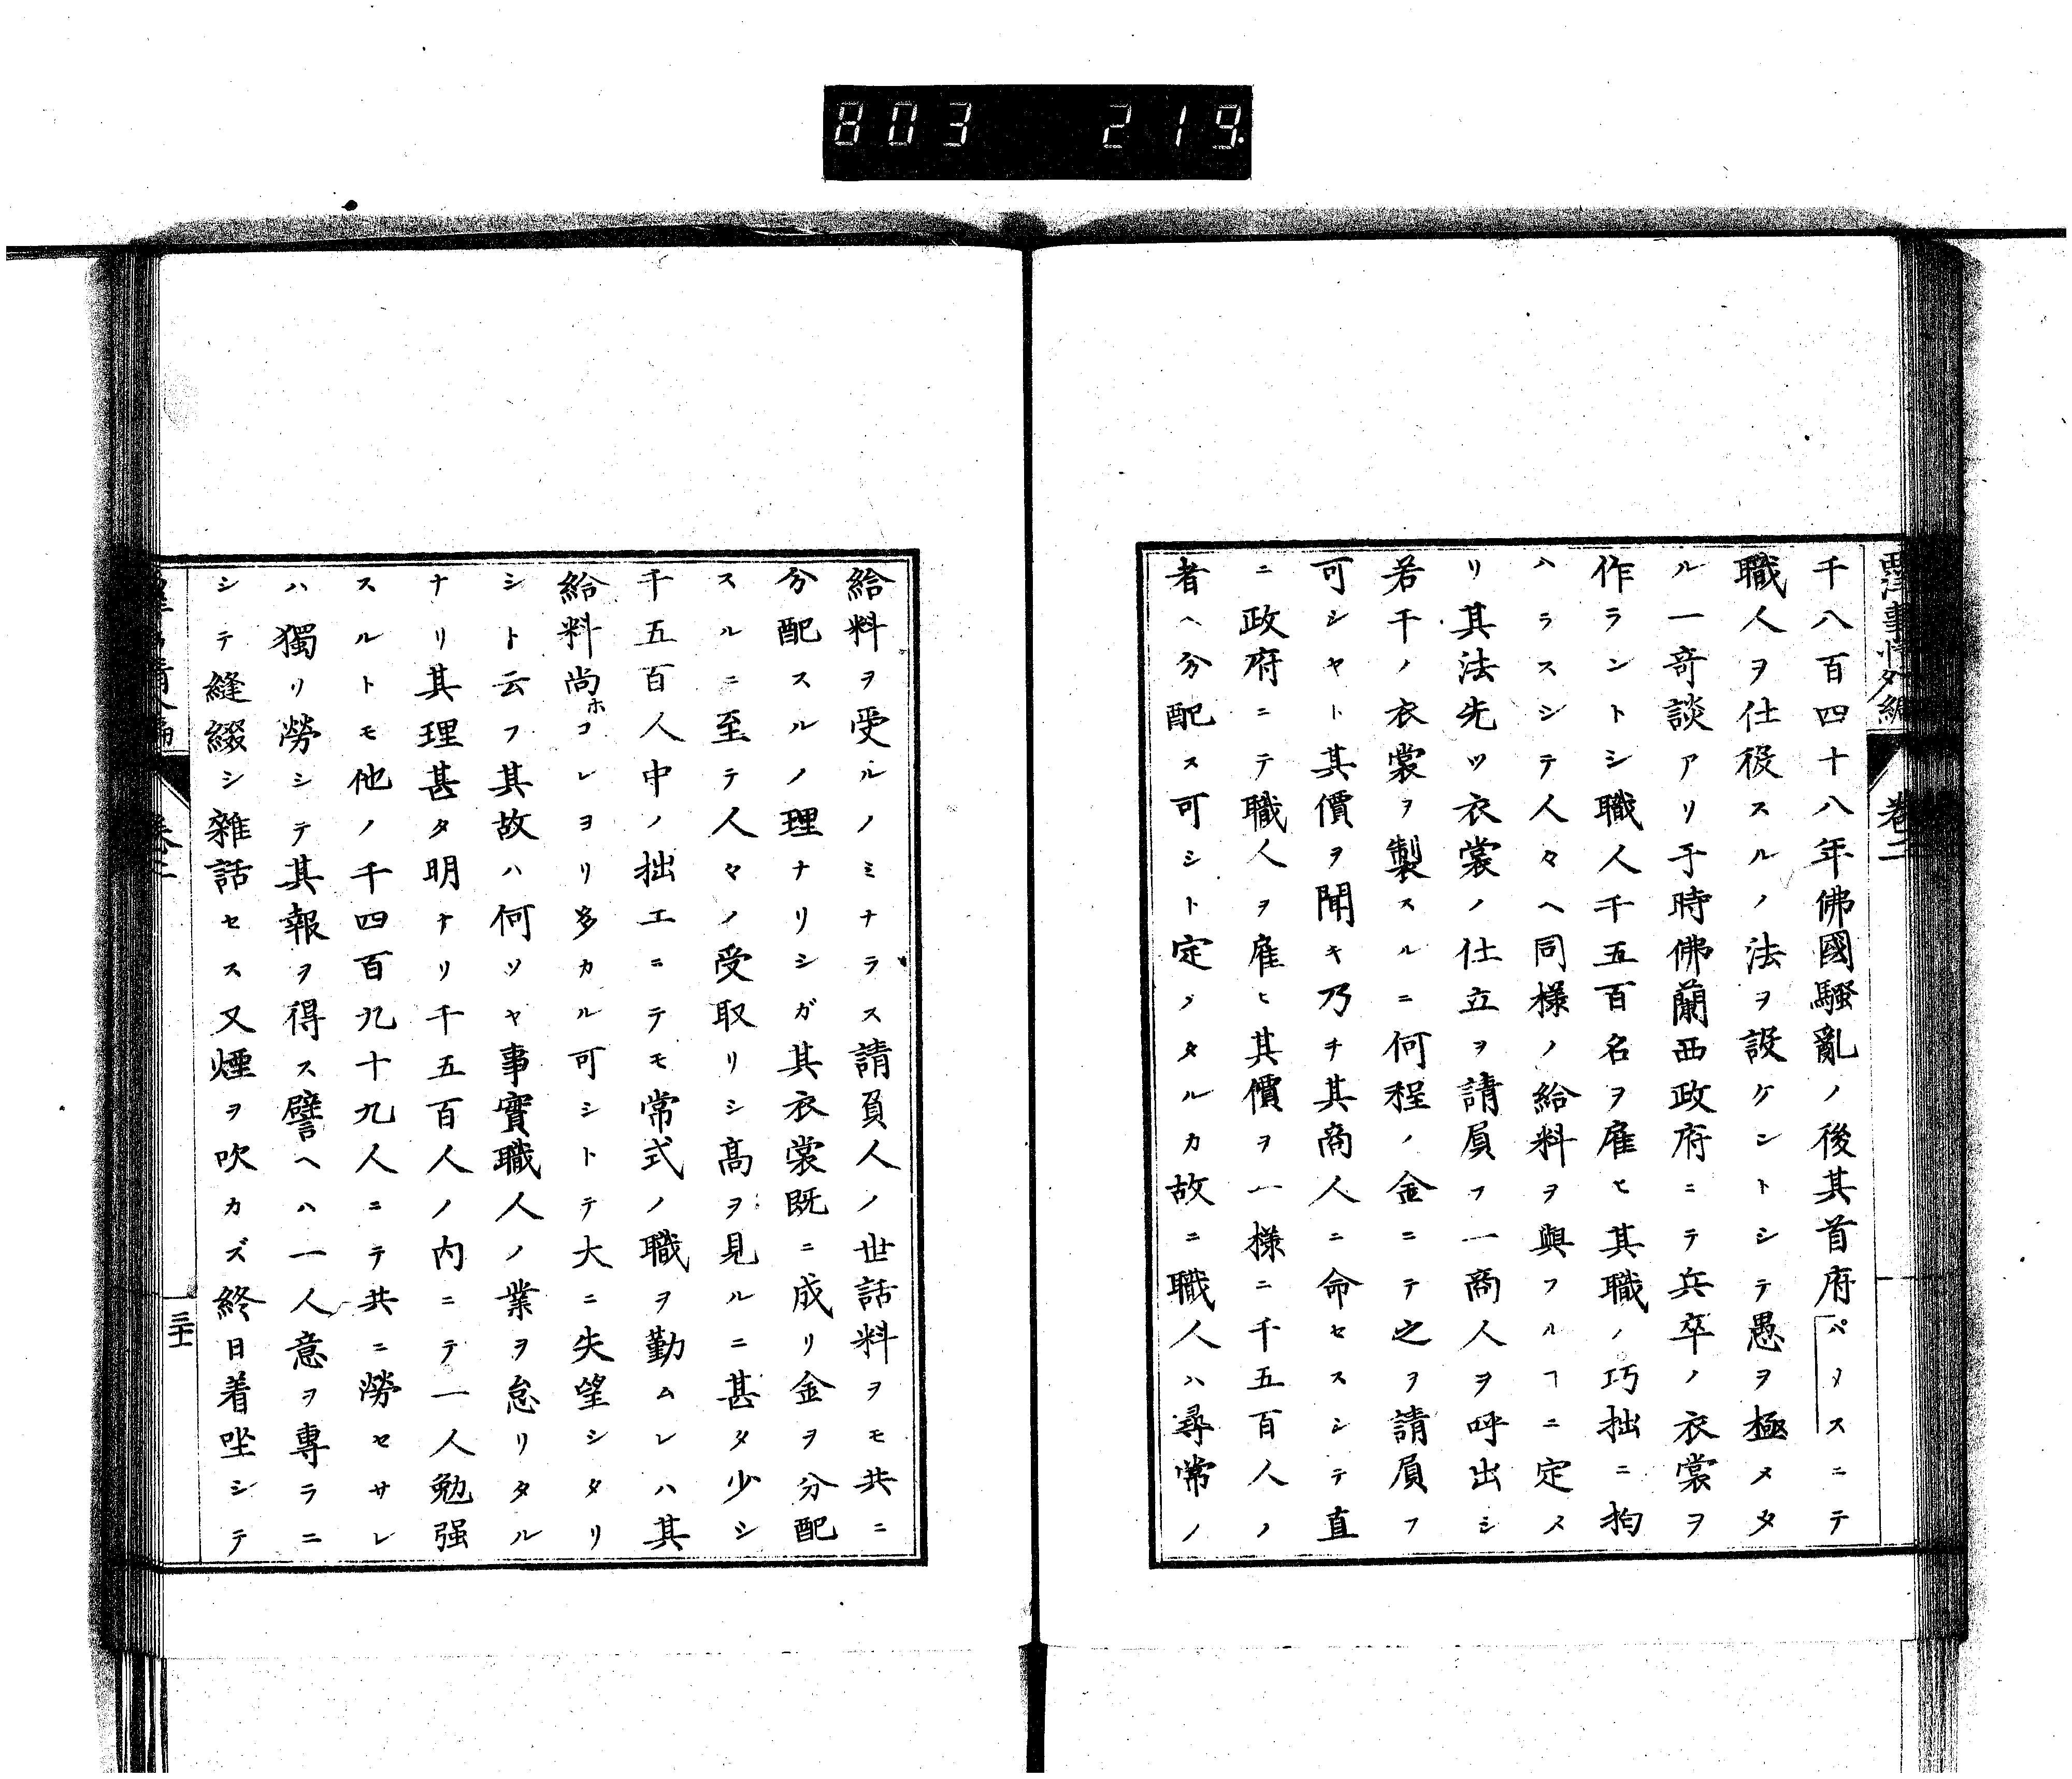 803 219
西洋事情外編
卷二
千八百四十八年佛國騷亂ノ後其首府パリスニテ
職人ヲ仕役スルノ法ヲ設ケントシテ愚ヲ極メタ
ル一奇談アリ于時佛蘭西政府ニテ兵卒ノ衣裳ヲ
作ラントシ職人千五百名ヲ雇ヒ其職ノ巧拙ニ拘
ハラスシテ人々ヘ同樣ノ給料ヲ與フルヿニ定メ
リ其法先ツ衣裳ノ仕立ヲ請負フ一商人ヲ呼出シ
若干ノ衣裳ヲ製スルニ何程ノ金ニテ之ヲ請負フ
可シヤト其價ヲ聞キ乃チ其商人ニ命セスシテ直
ニ政府ニテ職人ヲ雇ヒ其價ヲ一樣ニ千五百人ノ
者ヘ分配ス可シト定メタルカ故ニ職人ハ尋常ノ
給料ヲ受ルノミナラス請負人ノ世話料ヲモ共ニ
分配スルノ理ナリシガ其衣裳既ニ成リ金ヲ分配
スルニ至テ人々ノ受取リシ高ヲ見ルニ甚タ少シ
千五百人中ノ拙工ニテモ常式ノ職ヲ勤ムレハ其
給料尚ホコレヨリ多カル可シトテ大ニ失望シタリ
シト云フ其故ハ何ソヤ事實職人ノ業ヲ怠リタル
ナリ其理甚タ明ナリ千五百人ノ内ニテ一人勉强
スルトモ他ノ千四百九十九人ニテ共ニ勞セサレ
ハ獨リ勞シテ其報ヲ得ス譬ヘハ一人意ヲ專ラニ
シテ縫綴シ雜話セス又煙ヲ吹カズ終日着坐シテ
卷二
三十